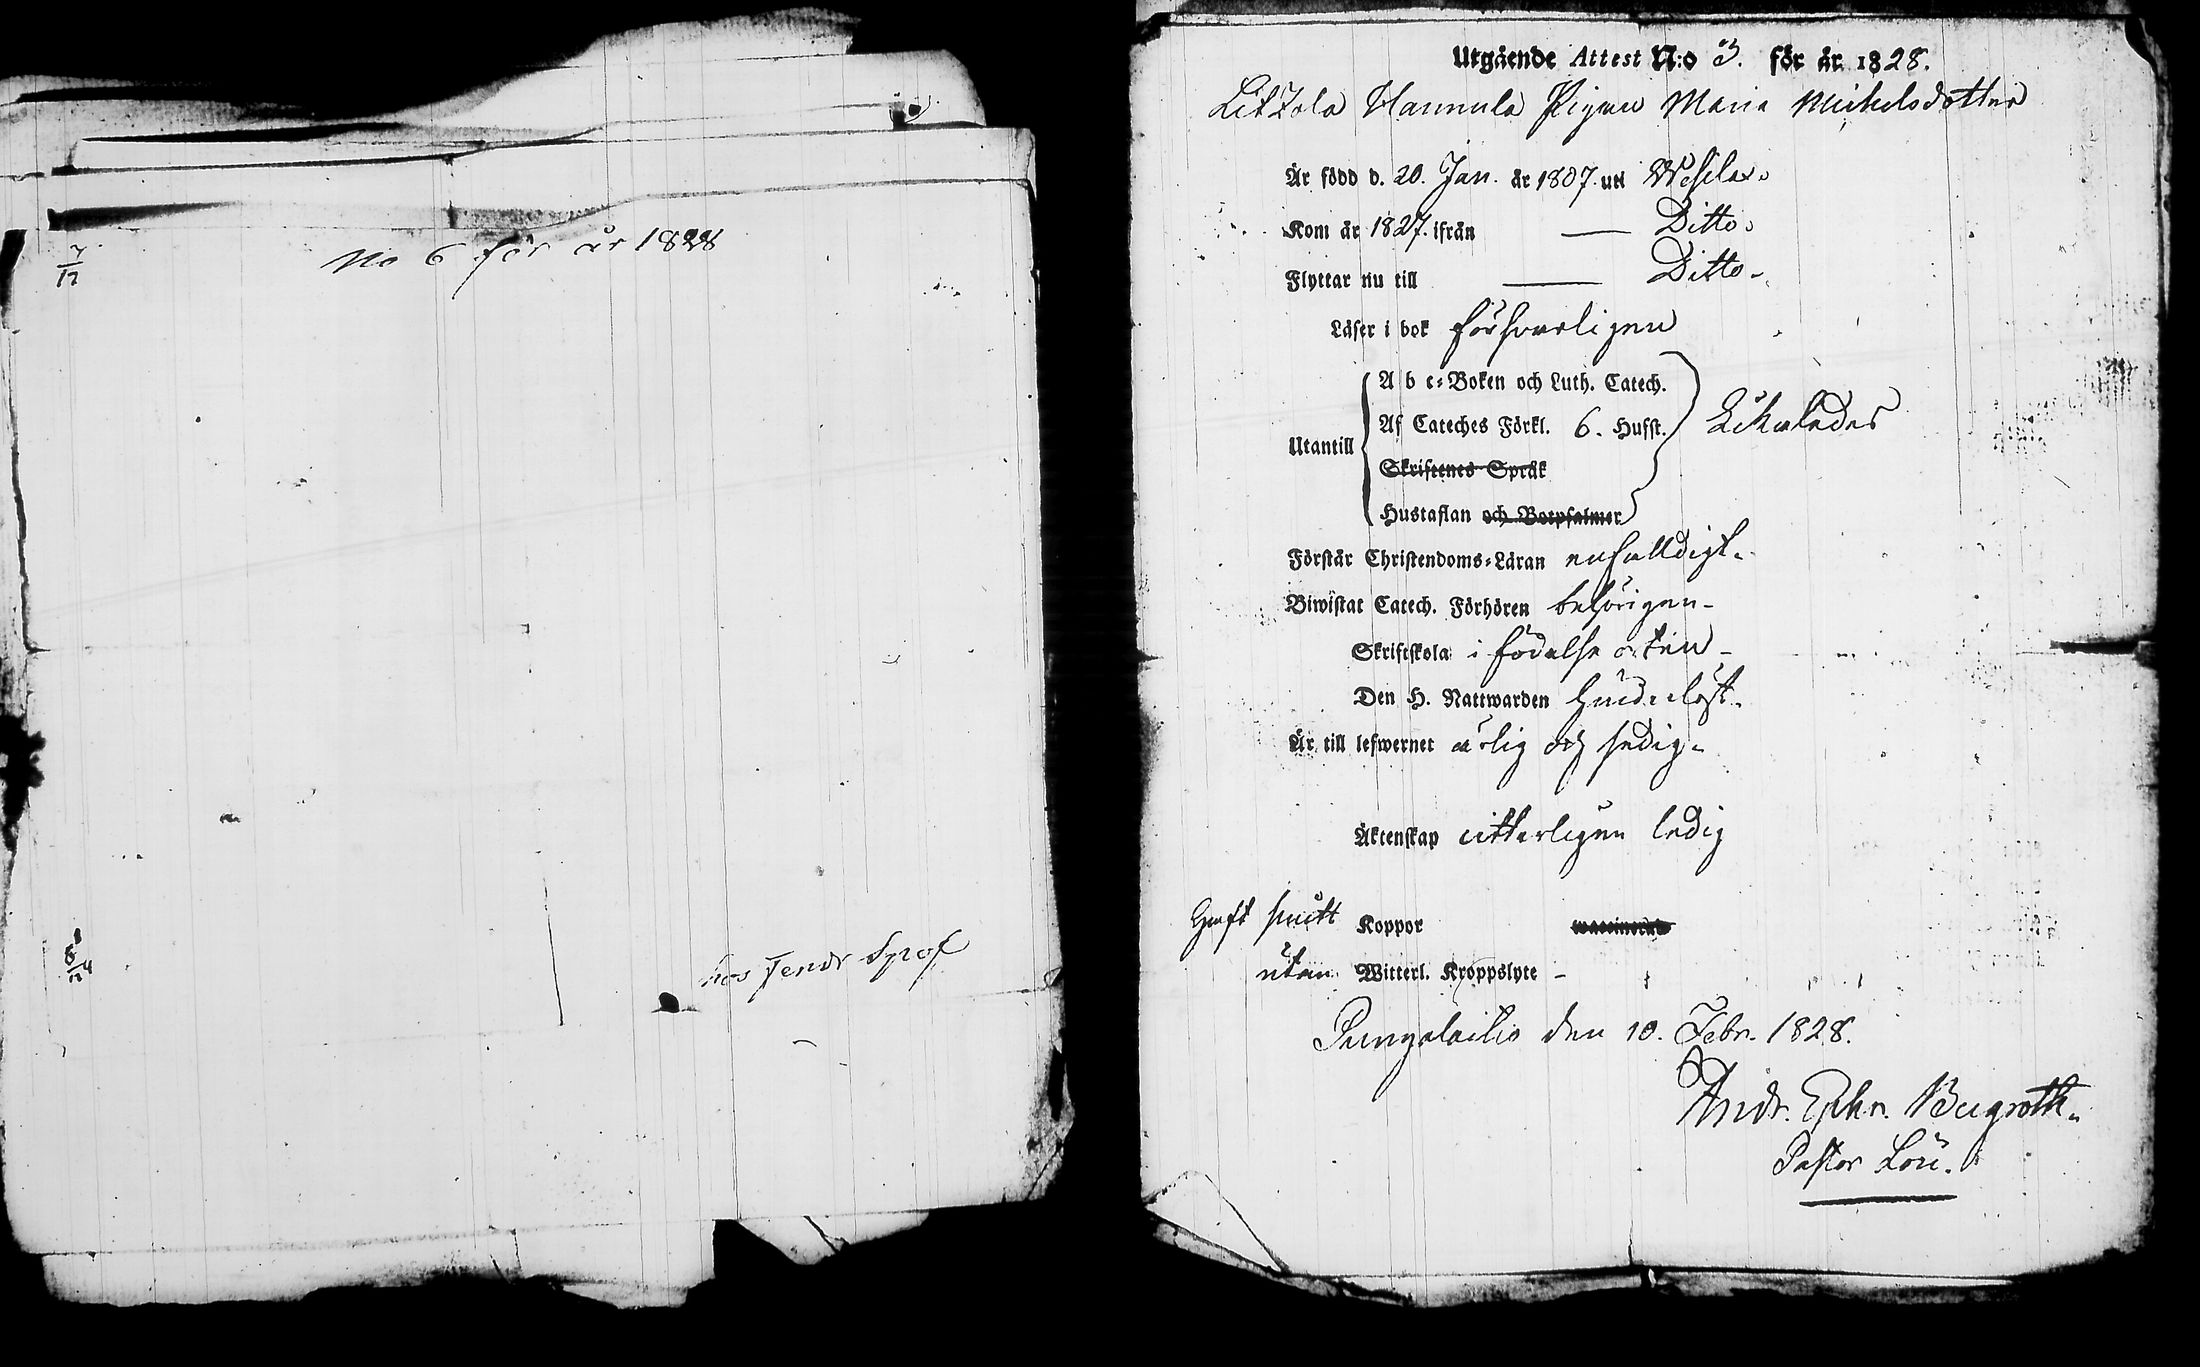 7/12
No 6 för år 1828
8/12 4
hos Fendr Sprof
Utgående Attest N:o 3. för år 1828.
Litzola Hannula Pigan Maria Michelsdotter
Är född d. 20. Jan. år 1807. uti Wesilax.
Kom år 1827. ifrån — Ditto.
Flyttar nu till — Ditto.
Läser i bok försvarligen
A b c-Boken och Luth. Catech.
Utantill Af Cateches Förkl. 6. Hufst. Likaledes
Skriftenes Språk
Hustaflan och Botpsalmer
Förstår Christendoms-Läran enfalldigt.
Biwistat Catech. Förhören behörigen
Skriftskola i födelse orten
Den H. Nattwarden hinderlöst.
Är till lefwernet ärlig och sedig.
Äktenskap witterligen ledig
Haft smitt Koppor waccinerad
utan Witterl. Kroppslyte
Pungalaitio den 10. Febr. 1828.
Andr. Ephr. Bergroth.
Pastor Loci.